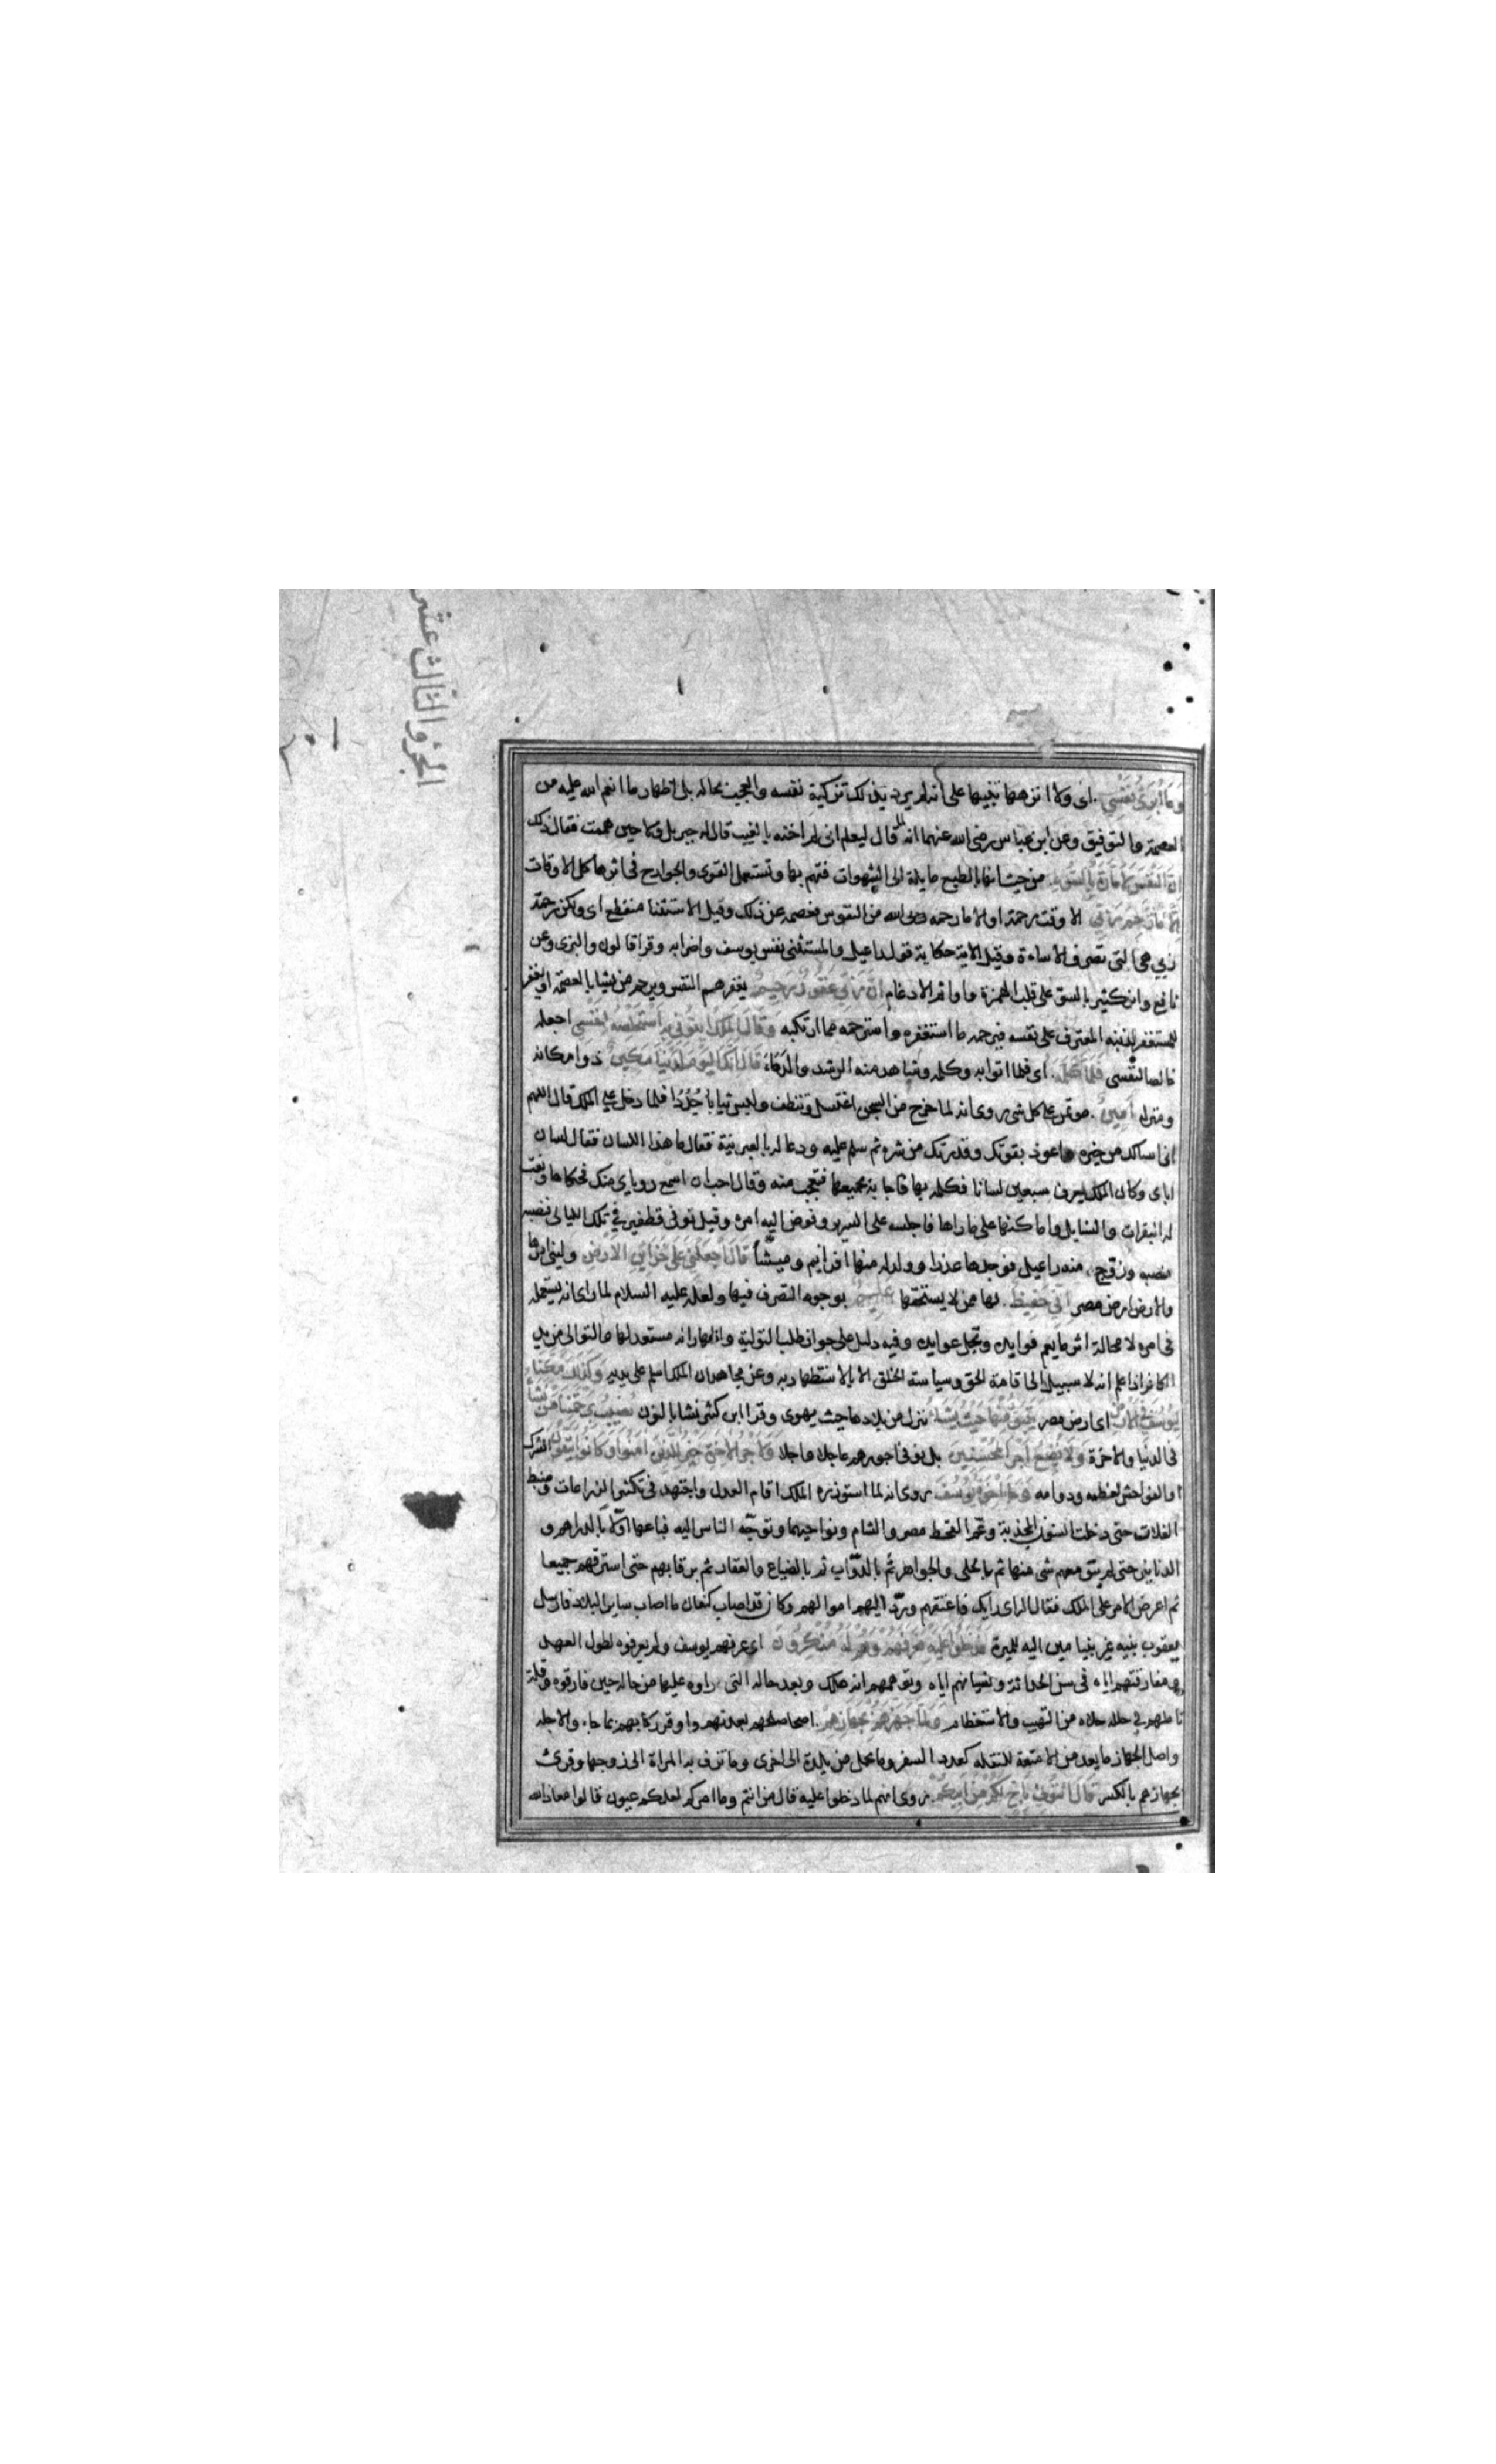 الجزؤ الثالث عشر
وَمَا أُبَرِّئُ نَفْسِي. اى ولا انزهها تنبيها على انه لم يرد بذلك تزكية نفسه والعجب بحاله بل اظهار ما انعم الله عليه من
العصمة والتوفيق وعن ابن عباس رضى الله عنهما انه لما قال ليعلم انى لم اخنه بالغيب قال له جبريل ولا حين هممت فقال ذلك
انّ النفس لامّارة بالسّوء. من حيث انها بالطبع مايلة الى الشهوات فتهم بها وتستعمل القوى والجوارح فى اثرها كل الاوقات
الّا مَا رَحِمَ رَبّي الا وقت رحمة او الا ما رحمه الله من النفوس فعصمه عن ذلك وقيل الاستثنا منقطع اى ولكن رحمة
ربي هى التى تصرف الاساءة وقيل الاية حكاية قول راعيل والمستثنى نفس يوسف واضرابه وقرا قالون والبزى وعن
نافع وابن كثير بالسوّ على قلب الهمزة واوا ثم الادغام انّ ربّي غَفُورٌ رحيمٌ يغفر هم النفس ويرحم من يشا بالعصمة او يغفر
للمستغفر لذنبه المعترف على نفسه فيرحمه ما استغفره واسترحمه مما ارتكبه وَقَالَ المَلِكُ ايتُونِي بِهِ اَسْتَخْلِصْهُ لِنَفْسِي اجعله
خالصا لنفسى فَلَمّا كَلَّمَهُ. اى فلما اتوا به وكلمه وشاهد منه الرشد والدهاء قَالَ اِنَّكَ اليَوْمَ لَدَيْنَا مَكِينٌ ذو امكانه
ومنزله اَمِينٌ. موتمن على كل شى روى انه لما خرج من السجن اغتسل وتنظف ولبس ثيابا جُدُدًا فلما دخل على الملك قال اللهم
انى اسالك من خيره واعوذ بقوتك وقدرتك من شره ثم سلم عليه ودعا له بالعبرنية فقال ما هذا اللسان فقال لسان
اباى وكان الملك يعرف سبعين لسانا فكلمه بها فاجابه بجميعها فتعجب منه وقال احب ان اسمع روياي منك فحكاها ونعت
له البقرات والسنابل واماكنها على ما راها فاجلسه على السرير وفوض اليه امره وقيل توفى قطفير في تلك الليالى فنصبه
منصبه وزوج منه راعيل فوجدها عذرا وولد له منها افرايم وميشا قَالَ اجْعَلْنِي عَلَى خَزَائِنِ الاَرْضِ ولينى امرها
والارض ارض مصر اِنّي حَفِيظٌ. لها ممن لا يستحقها عَلِيمٌ بوجوه التصرف فيها ولعله عليه السلام لما راى انه يستعمله
فى امره لا محالة اثر ما يعم فوايده وتجل عوايده وفيه دليل على جواز طلب التولية واظهار انه مستعد لها والتولى من يد
الكافر اذا علم انه لا سبيل الى اقامة الحق وسياسة الخلق الا بالاستظهار به وعن مجاهد ان الملك اسلم على يديه وَكَذَلِكَ مَكَّنَّا
لِيُوسُفَ فِي الاَرْضِ اى ارض مصر يَتَبَوَّأُ مِنْهَا حَيْثُ يَشَاءُ ننزل من بلادها حيث يهوى وقرا ابن كثير نشا بالنون نُصِيبُ بِرَحْمَتِنَا مَنْ نَشَاءُ
فى الدنيا والاخرة وَلَا نُضِيعُ اَجْرَ المُحْسِنِين بل نوفى اجورهم عاجلا واجلا وَلَاَجْرُ الاخِرَةِ خَيْرٌ لِلَّذِينَ امَنُوا وَكَانُوا يَتَّقُونَ الشرك
والفواحش لعظمه ودوامه وَجَاءَ اِخْوَةُ يُوسُفَ روى انه لما استوزره الملك اقام العدل واجتهد فى تكثير الزراعات وضبط
الغلات حتى دخلت السنون المجدبة وعم القحط مصر والشام ونواحيهما وتوجّه الناس اليه فباعها اولا بالدراهم و
الدنانير حتى لم يبق معهم شى منها ثم بالحلى والجواهر ثم بالدّواب ثم بالضياع والعقار ثم برقابهم حتى استرقهم جميعا
ثم اعرض الامر على الملك فقال الراى رايك فاعتقهم وردّ اليهم اموالهم وكان قد اصاب كنعان ما اصاب ساير البلاد فارسل
يعقوب بنيه غير بنيامين اليه للميرة فَدَخَلُوا عَلَيْهِ فَعَرَفَهُمْ وَهُمْ لَهُ مُنْكِرُونَ اى عرفهم يوسف ولم يعرفوه لطول العهد
ومفارقتهم اياه فى سن الحداثة ونسيانهم اياه وتوهمهم انه هلك وبعد حاله التى راوه عليها من حاله حين فارقوه وقلة
تاملهم في حلاه من التهيب والاستعظام وَلَمَّا جَهَّزَهُمْ بِجَهَازِهِمْ. اصلحهم بعدتهم واوقر ركايبهم بما جاء والاجله
واصل الجهاز ما يعد من الامتعة للنقله كعدد السفر وما يحمل من بلدة الى اخرى وما تزف به المراة الى زوجها وقرئ
بجهازهم بالكسر قَالَ ائْتُونِي بِاَخٍ لَكُمْ مِنْ اَبِيكُمْ. روى انهم لما دخلوا عليه قال من انتم وما امركم لعلكم عيون قالوا معاذ الله